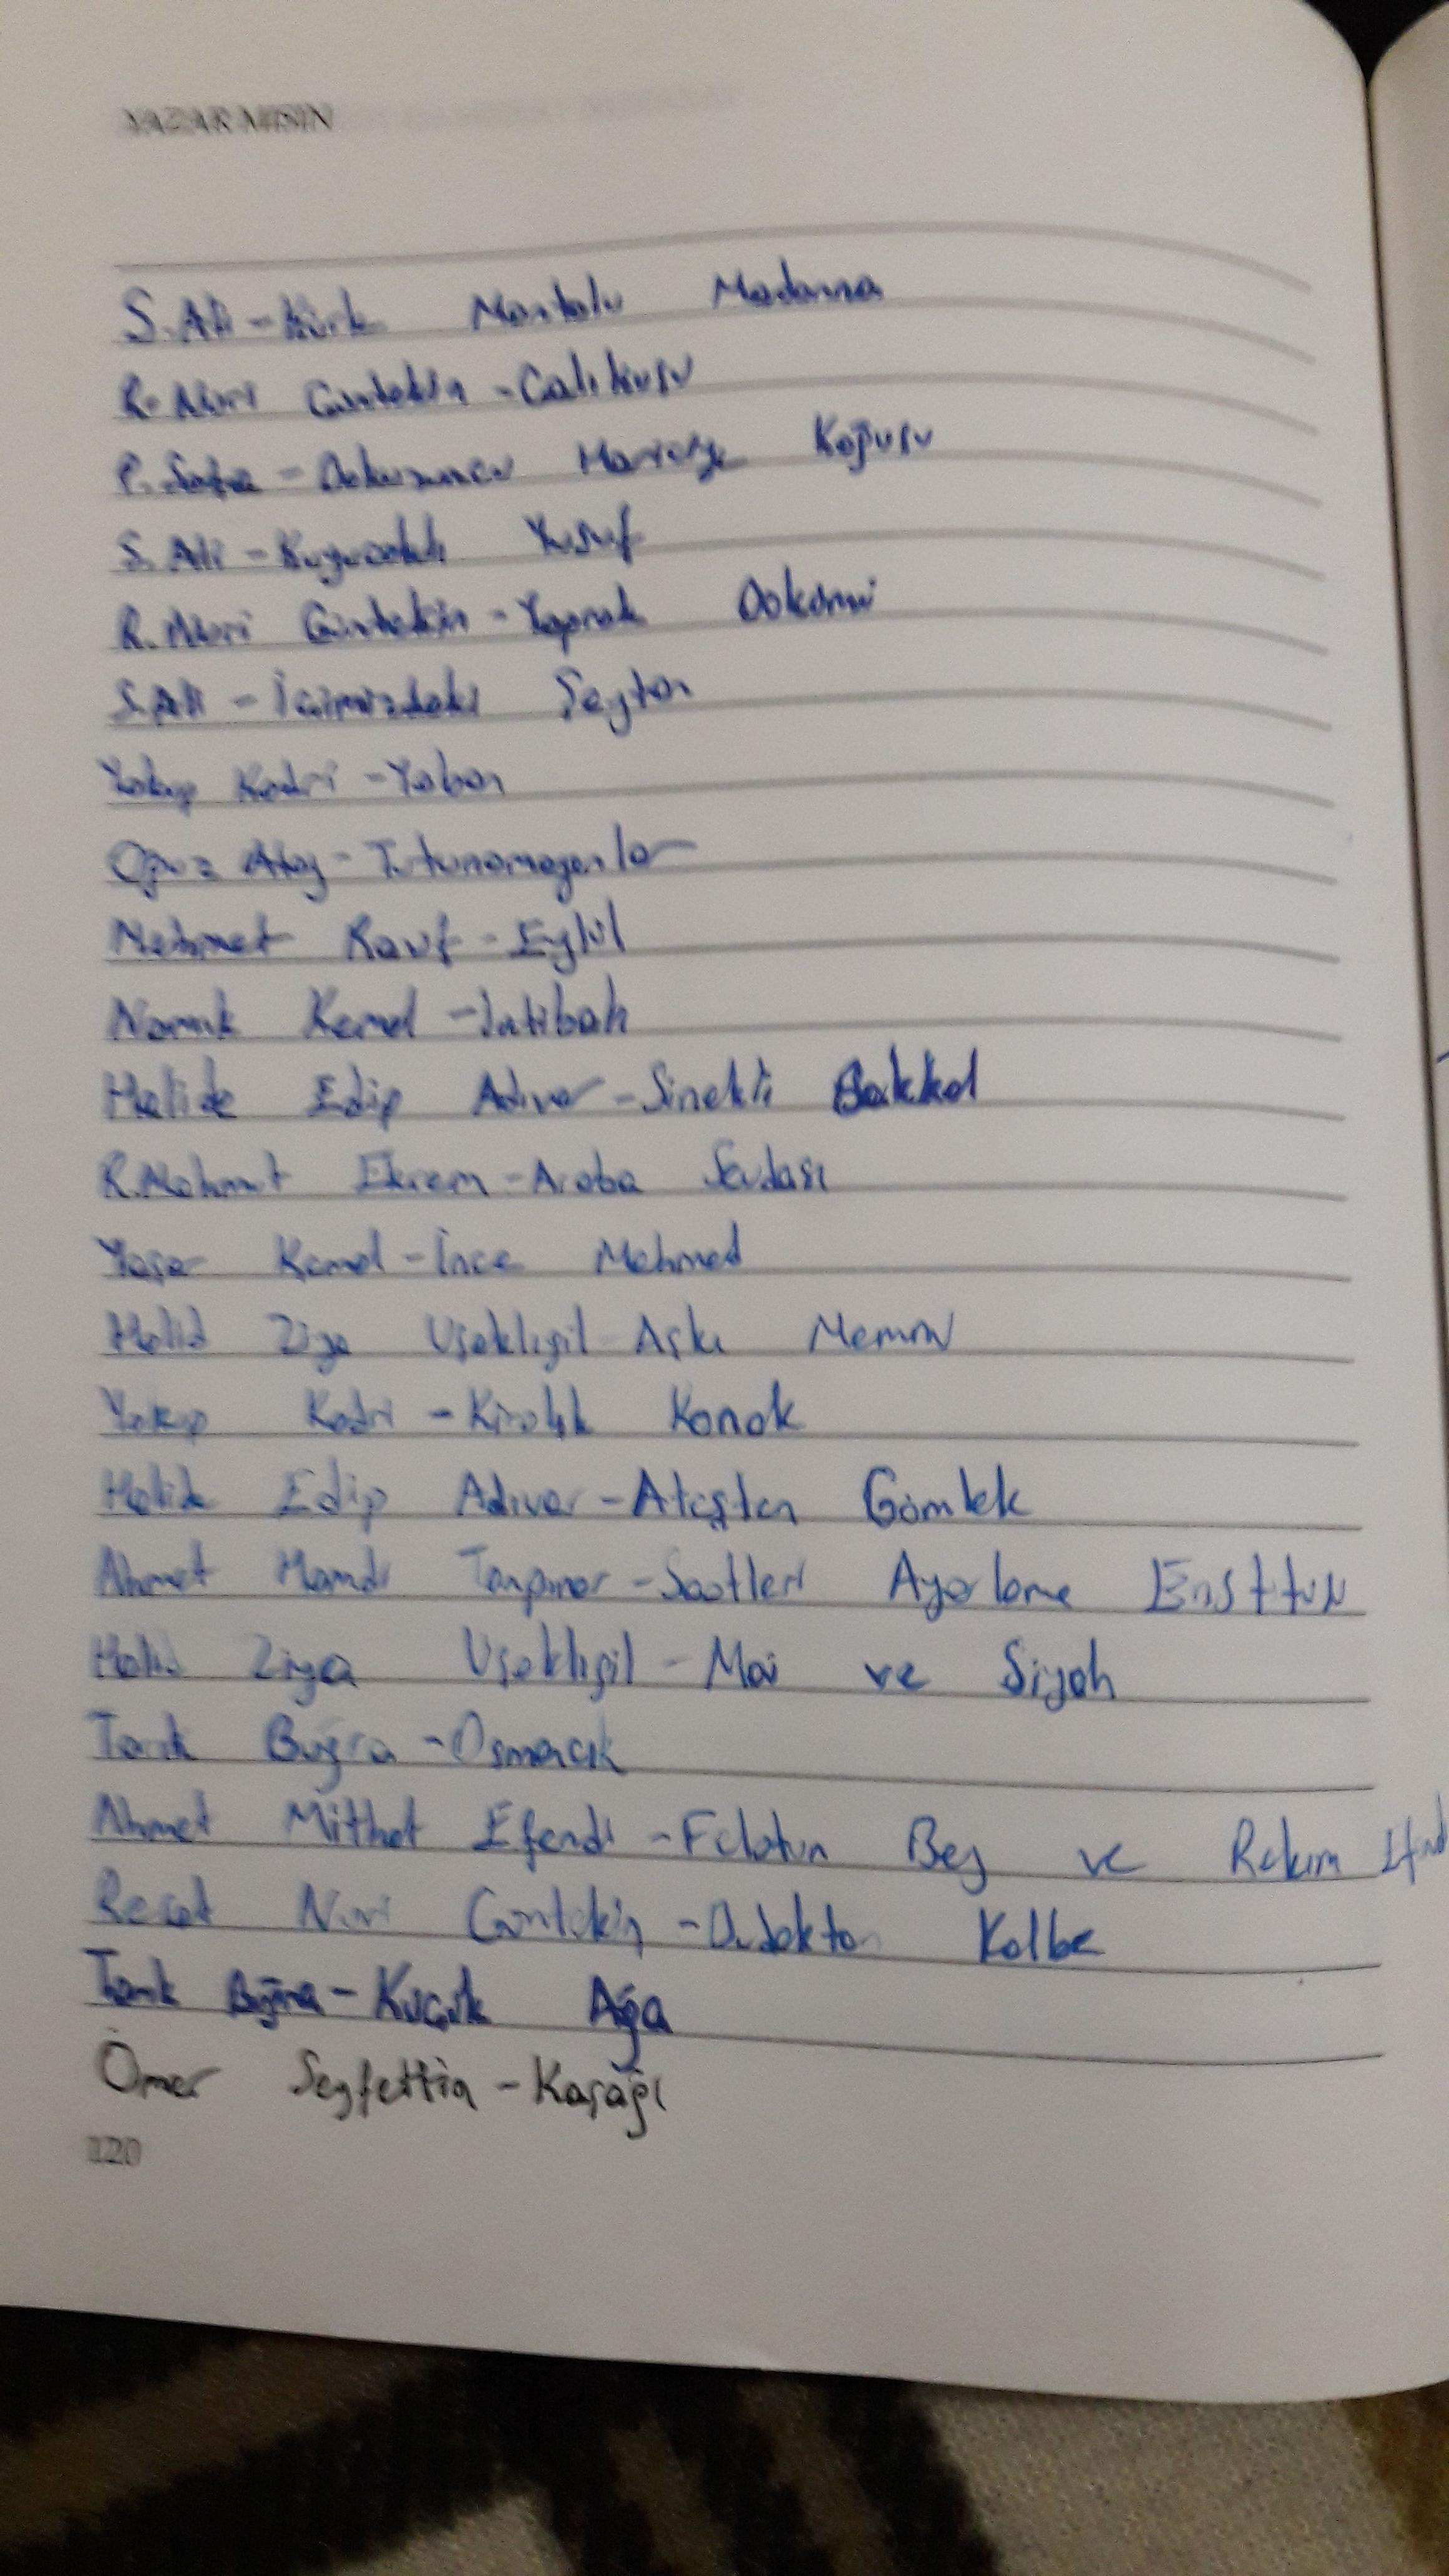 YAZAR MISIN
S. Ali - Kürk Mantolu Madonna
R. Nuri Güntekin - Çalıkuşu
P. Safa - Dokuzuncu Hariciye Koğuşu
S. Ali - Kuyucaklı Yusuf
R. Nuri Güntekin - Yaprak Dökümü
S. Ali - İçimizdeki Şeytan
Yakup Kadri - Yaban
Oğuz Atay - Tutunamayanlar
Mehmet Rauf - Eylül
Namık Kemal - İntibah
Halide Edip Adıvar - Sinekli Bakkal
R. Mahmut Ekrem - Araba Sevdası
Yaşar Kemal - İnce Mehmed
Halid Ziya Uşaklıgil Aşkı Memnu
Yakup Kadri - Kiralık Konak
Halide Edip Adıvar - Ateşten Gömlek
Ahmet Hamdi Tanpınar - Saatleri Ayarlama
Halid Ziya Uşaklıgil - Mai ve Siyah
Tarık Buğra - Osmancık
Ahmet Mithat Efendi - Felatun Bey ve Rakım
Reşat Nuri Güntekin - Dudaktan Kalbe
Tarık Buğra - Küçük Ağa
Ömer Seyfettin - Kaşağı
120